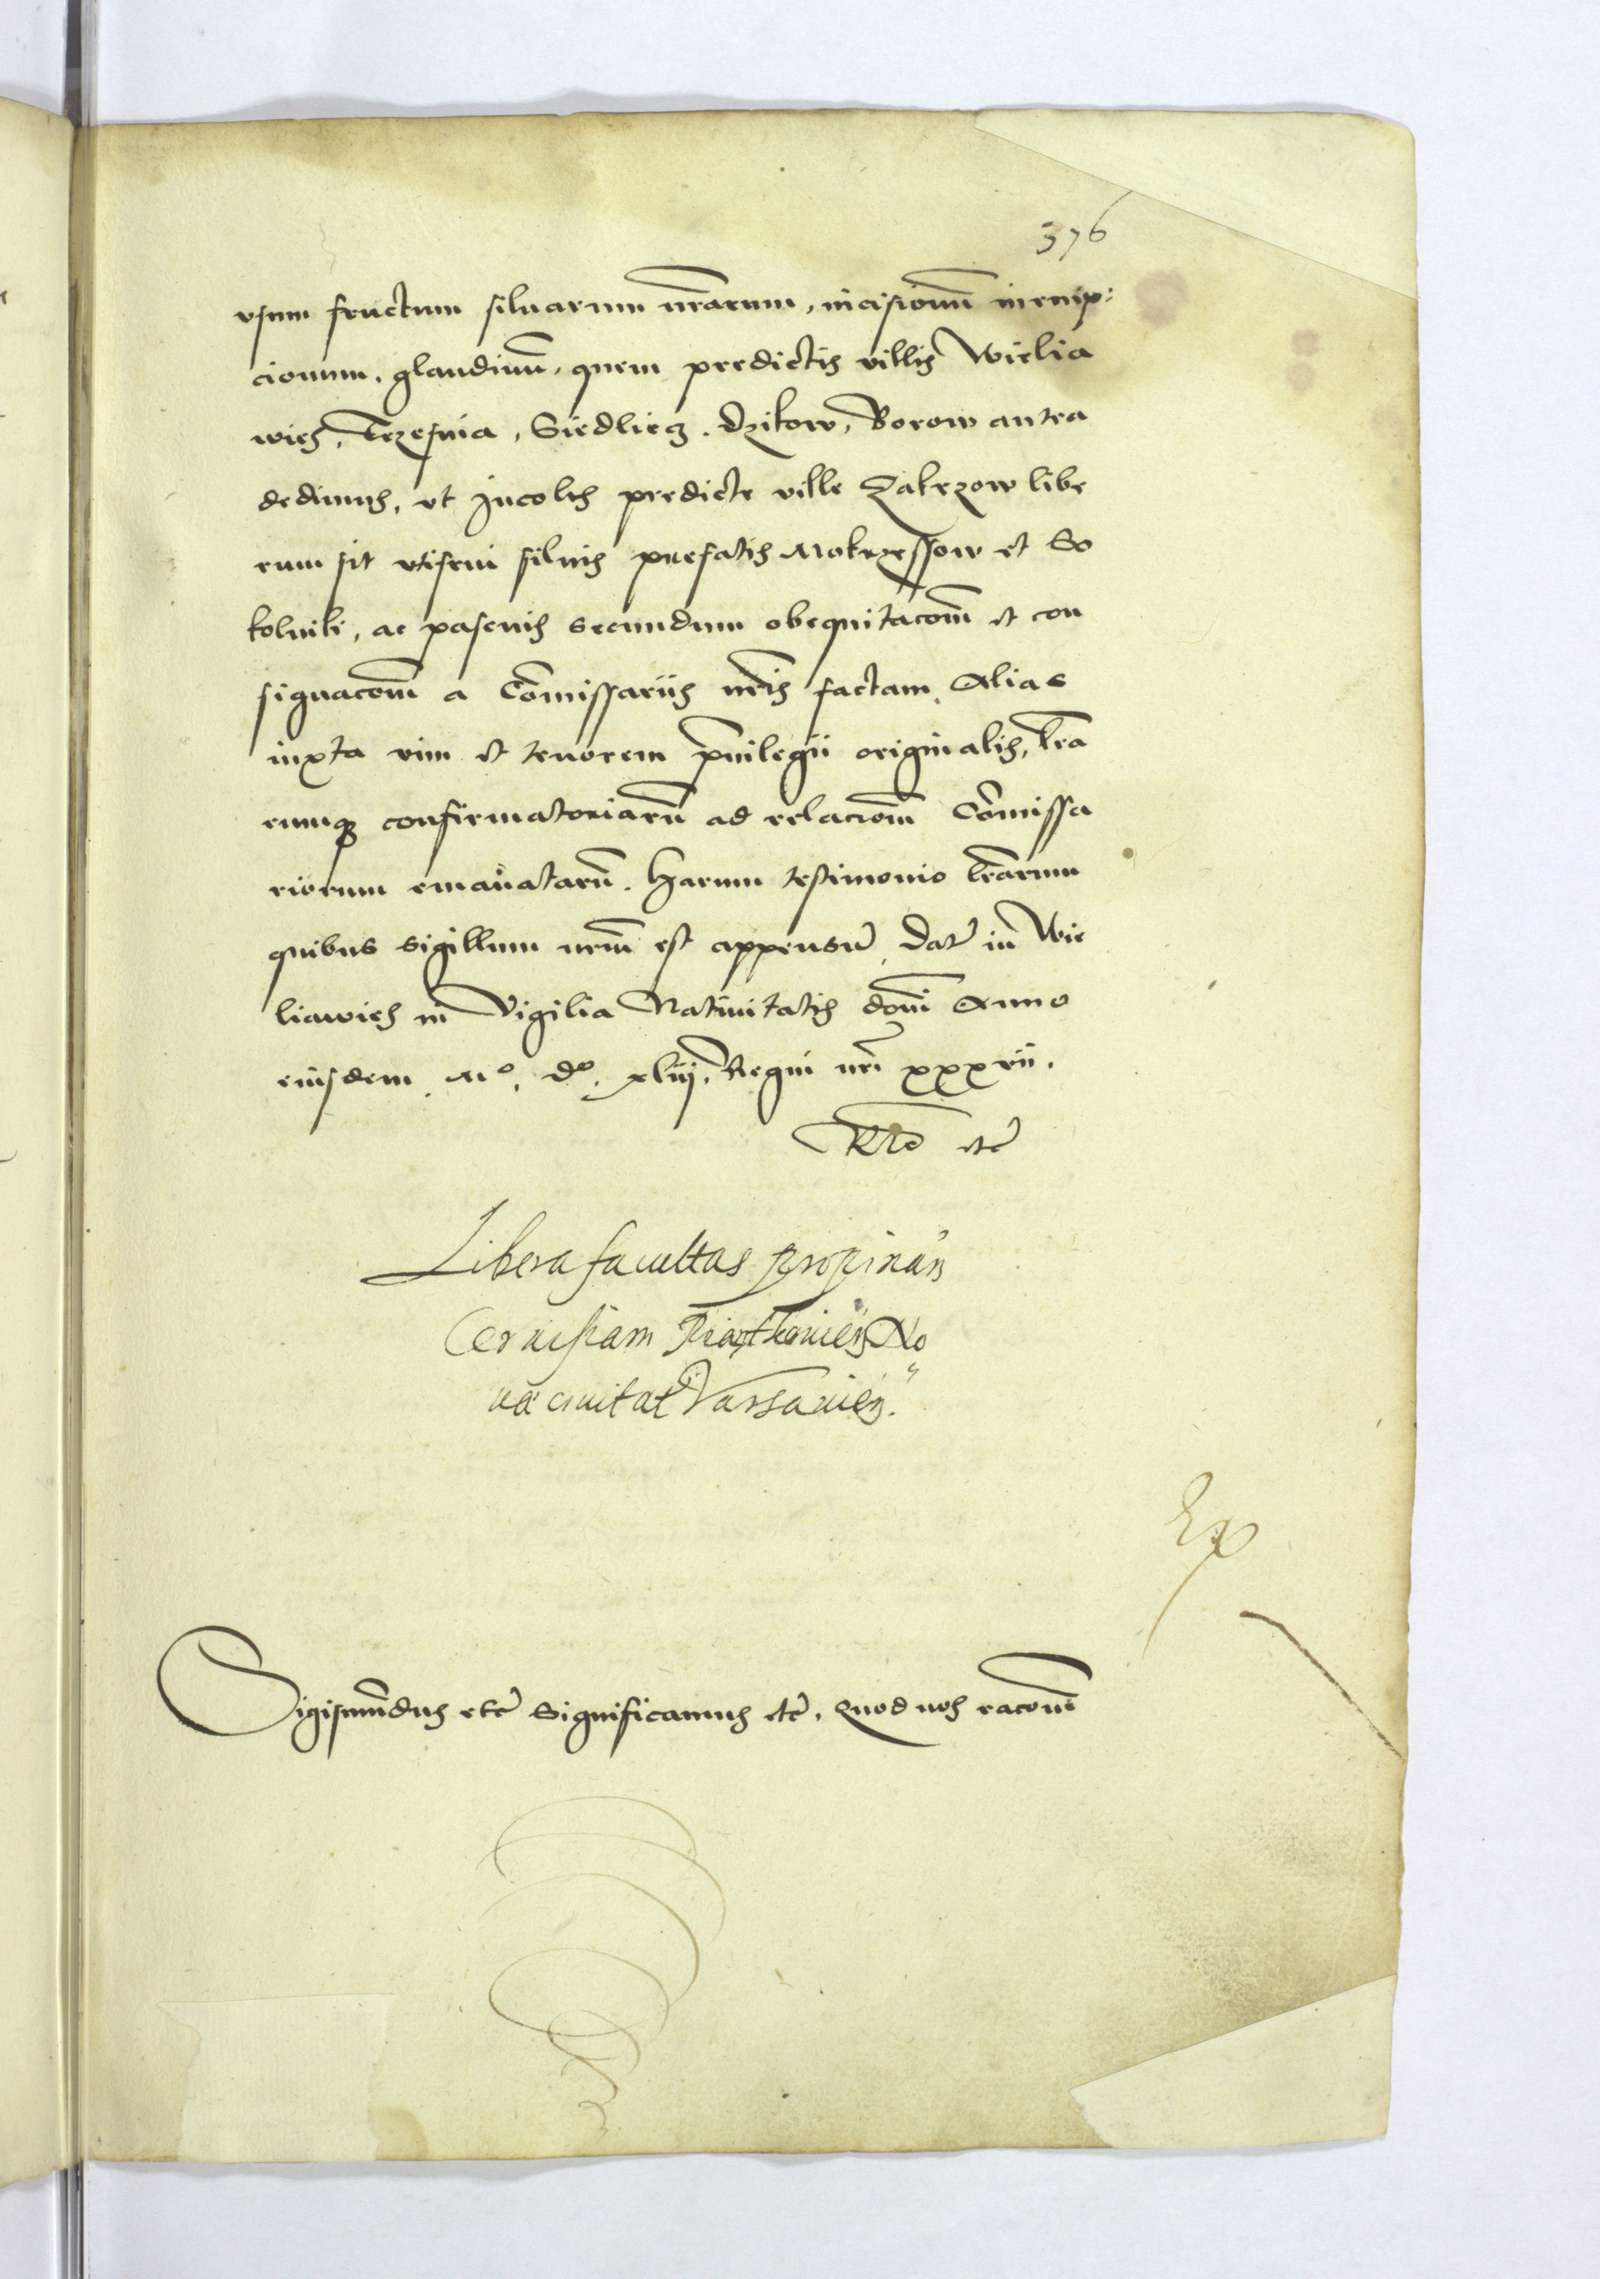 376
vsum fructum siluarum nrarum, incisionum inreuip:
cionum, glandinum, quem predictis villis Wielia
wies, Trzesnia, Siedliecz, Dzikow, Borow antea
dedimus, vt Incolis predicte ville Zakrzow libe
rum sit vtifrui siluis prefatis Mokrzessow et So
kolniki, ac pascuis secundum obequitacom et con
signacom a Comissariis nris factam. Alias
iuxta vim et tenorem priuilegii originalis, lra
rumq confirmatoriaru ad relaciom Comissa
riorum emanataru. Harum testimonio lrarum
quibus sigillum nrum est appensu. Dat in Wie
liawies in Vigilia Natiuitatis domi Anno
eiusdem Mo. do. xliij. Regni nri xxxvii.
Rro etc
Libera facultas propinan
Ceruisiam Piathkowien No
ua ciuitat Varsauien.
Ex
Sigismundus etc Significamus etc. Quod nos racom